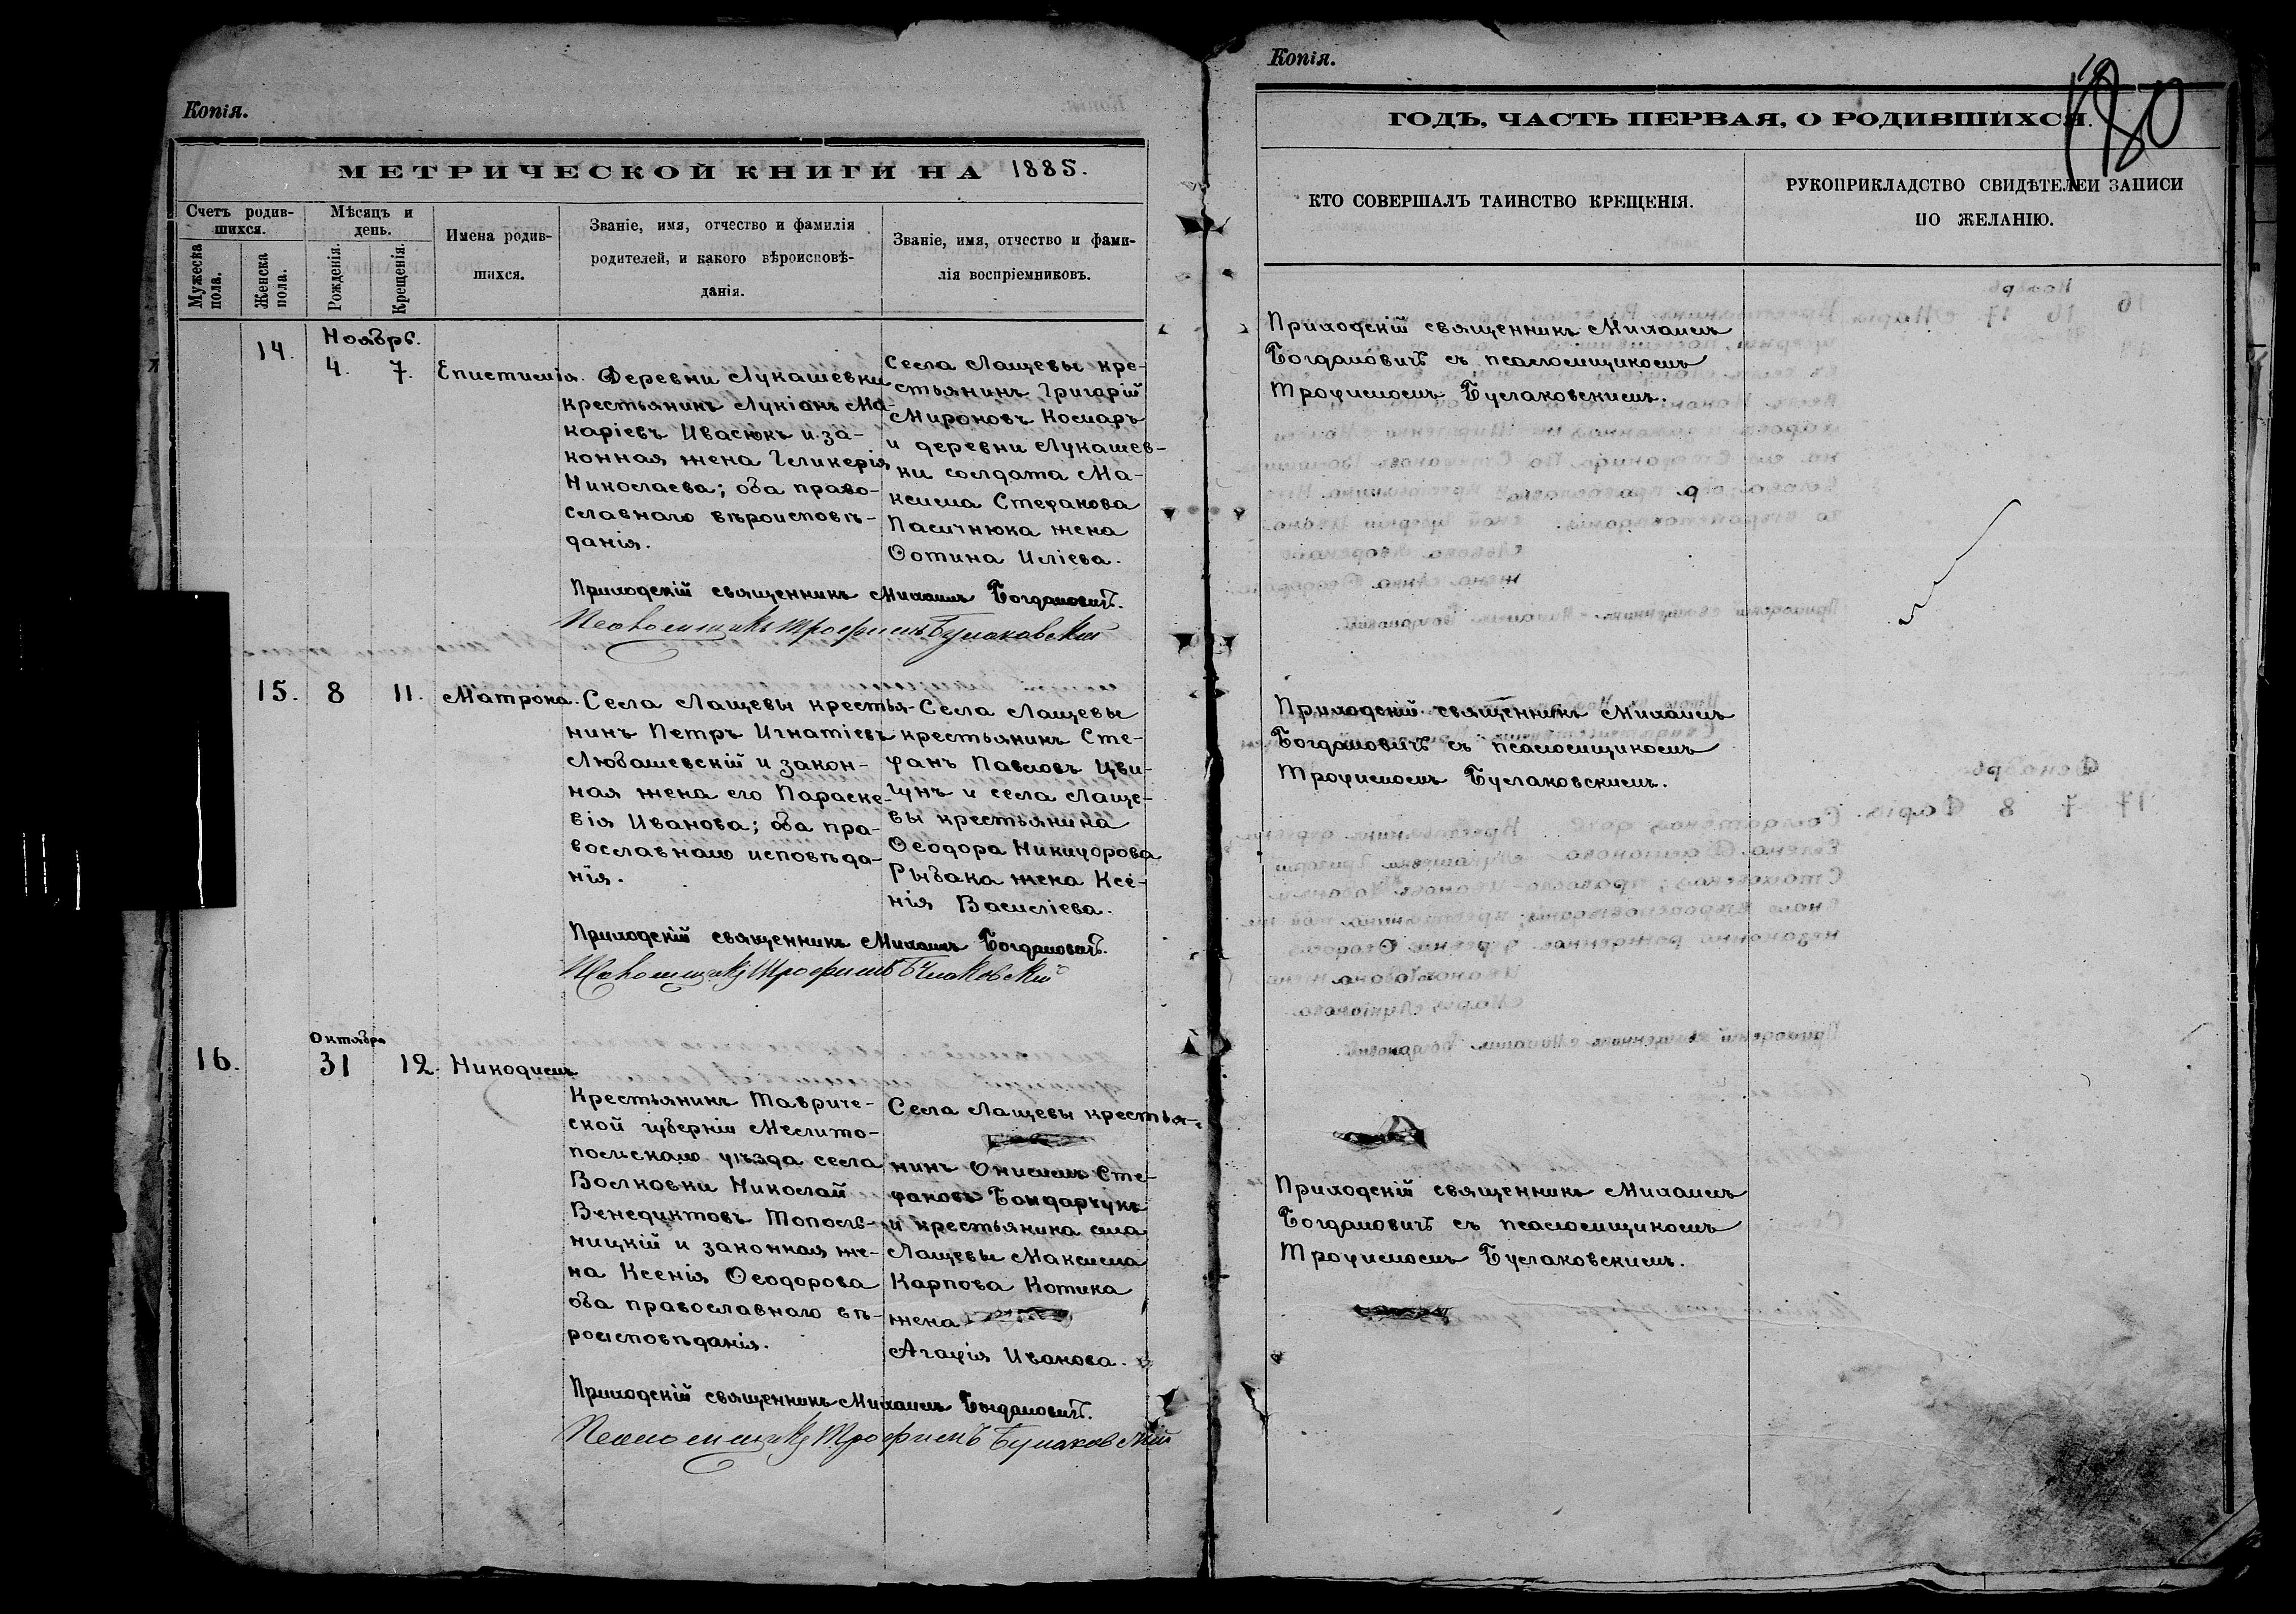 Копія.
МЕТРИЧЕСКОЙ КНИГИ НА 1885.
Счетъ родив-
шихся.
Мужеска пола.
Женска пола.
Мѣсяцъ и
день.
Рожденія.
Крещенія.
Имена родив-
шихся.
Званіе, имя, отчество и фамилія
родителей, и какого вѣроисповѣ-
данія.
Званіе, имя, отчество и фами-
лія воспріемниковъ.
Ноябрь.
14. 4. 7. Епистимія.
Деревни Лукашевки
крестьянинъ Лукіанъ Ма-
каріевъ Ивасюкъ и за-
конная жена Гликерія
Николаева; оба право-
славнаго вѣроисповѣ-
данія.
Села Лащевы кре-
стьянинъ Григорій
Мироновъ Комаръ
и деревни Лукашев-
ки солдата Ма-
ксима Стефанова
Пасичнюка жена
Фотина Иліева.
Приходскій священникъ Михаилъ Богдановичъ.
Псаломщикъ Трофимъ Буглаковскій
15. 8 11. Матрона.
Села Лащевы крестья-
нинъ Петръ Игнатіевъ
Любашевскій и закон-
ная жена его Параске-
вія Иванова; оба пра-
вославнаго исповѣда-
нія.
Села Лащевы
крестьянинъ Сте-
фанъ Павловъ Цви-
гунъ и села Лаще-
вы крестьянина
Ѳеодора Никифорова
Рыбака жена Ксе-
нія Василіева.
Приходскій священникъ Михаилъ Богдановичъ.
Псаломщикъ Трофимъ Буглаковскій
Октября
16. 31 12. Никодимъ
Крестьянинъ Тавриче-
ской губерніи Мелито-
польскаго уѣзда села
Волковки Николай
Венедиктовъ Тополь-
ницкій и законная же-
на Ксенія Ѳеодорова
оба православнаго вѣ-
роисповѣданія.
Села Лащевы крестья-
нинъ Онисимъ Сте-
фановъ Бондарчукъ
и крестьянина села
Лащевы Максима
Карпова Котика
жена
Агафія Иванова.
Приходскій священникъ Михаилъ Богдановичъ.
Псаломщикъ Трофимъ Буглаковскій
Копія.
180
ГОДЪ, ЧАСТЬ ПЕРВАЯ, О РОДИВШИХСЯ.
КТО СОВЕРШАЛЪ ТАИНСТВО КРЕЩЕНІЯ.
РУКОПРИКЛАДСТВО СВИДѢТЕЛЕЙ ЗАПИСИ
ПО ЖЕЛАНІЮ.
Приходскій священникъ Михаилъ
Богдановичъ съ псаломщикомъ
Трофимомъ Буглаковскимъ.
Приходскій священникъ Михаилъ
Богдановичъ съ псаломщикомъ
Трофимомъ Буглаковскимъ.
Приходскій священникъ Михаилъ
Богдановичъ съ псаломщикомъ
Трофимомъ Буглаковскимъ.